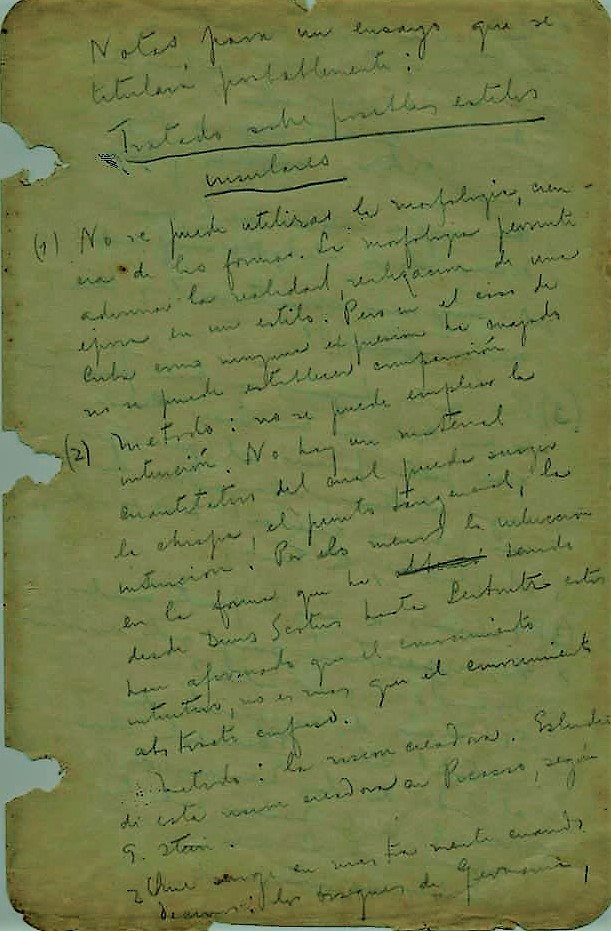 Notas para un ensayo que se
titulará probablemente:
Tratado sobre posibles estilos
insulares
(1) No se puede utilizar la morfología, cien-
cia de las formas. La morfología permite
adivinar la realidad, realización de una
época en un estilo. Pero en el caso de
Cuba como ninguna expresión ha cuajado
no se puede establecer comparación
(2) Método: no se puede emplear la
intuición. No hay un material
cuantitativo del cual pueda surgir
la chispa, el punto tangencial, la
intuición. Por lo menos la intuición
en la forma que ha tenido
desde Duns Scotus hasta Leibnitz, estos
han afirmado que el conocimiento
intuitivo, no es más que el conocimiento
abstracto confuso.
Método: la visión creadora. Estudié
di esta visión creadora en Picasso, según
G. Stein.
Que surge en nuestra mente cuando
decimos: los bosques de Germania,